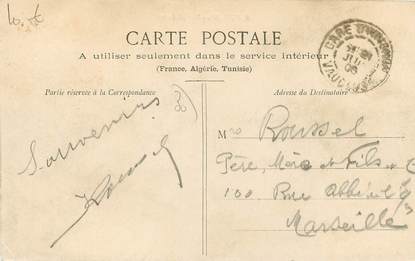 CARTE POSTALE
A utiliser seulement dans le service intérieur
(France, Algérie, Tunisie)
Partie réservée à la Correspondance
Adresse du Destinataire
Souvenirs
Roussel
Mrs Roussel
Père, Mère et Fils
100 Rue Abbé de l'
Marseille
GARE D'
VAUCLUSE